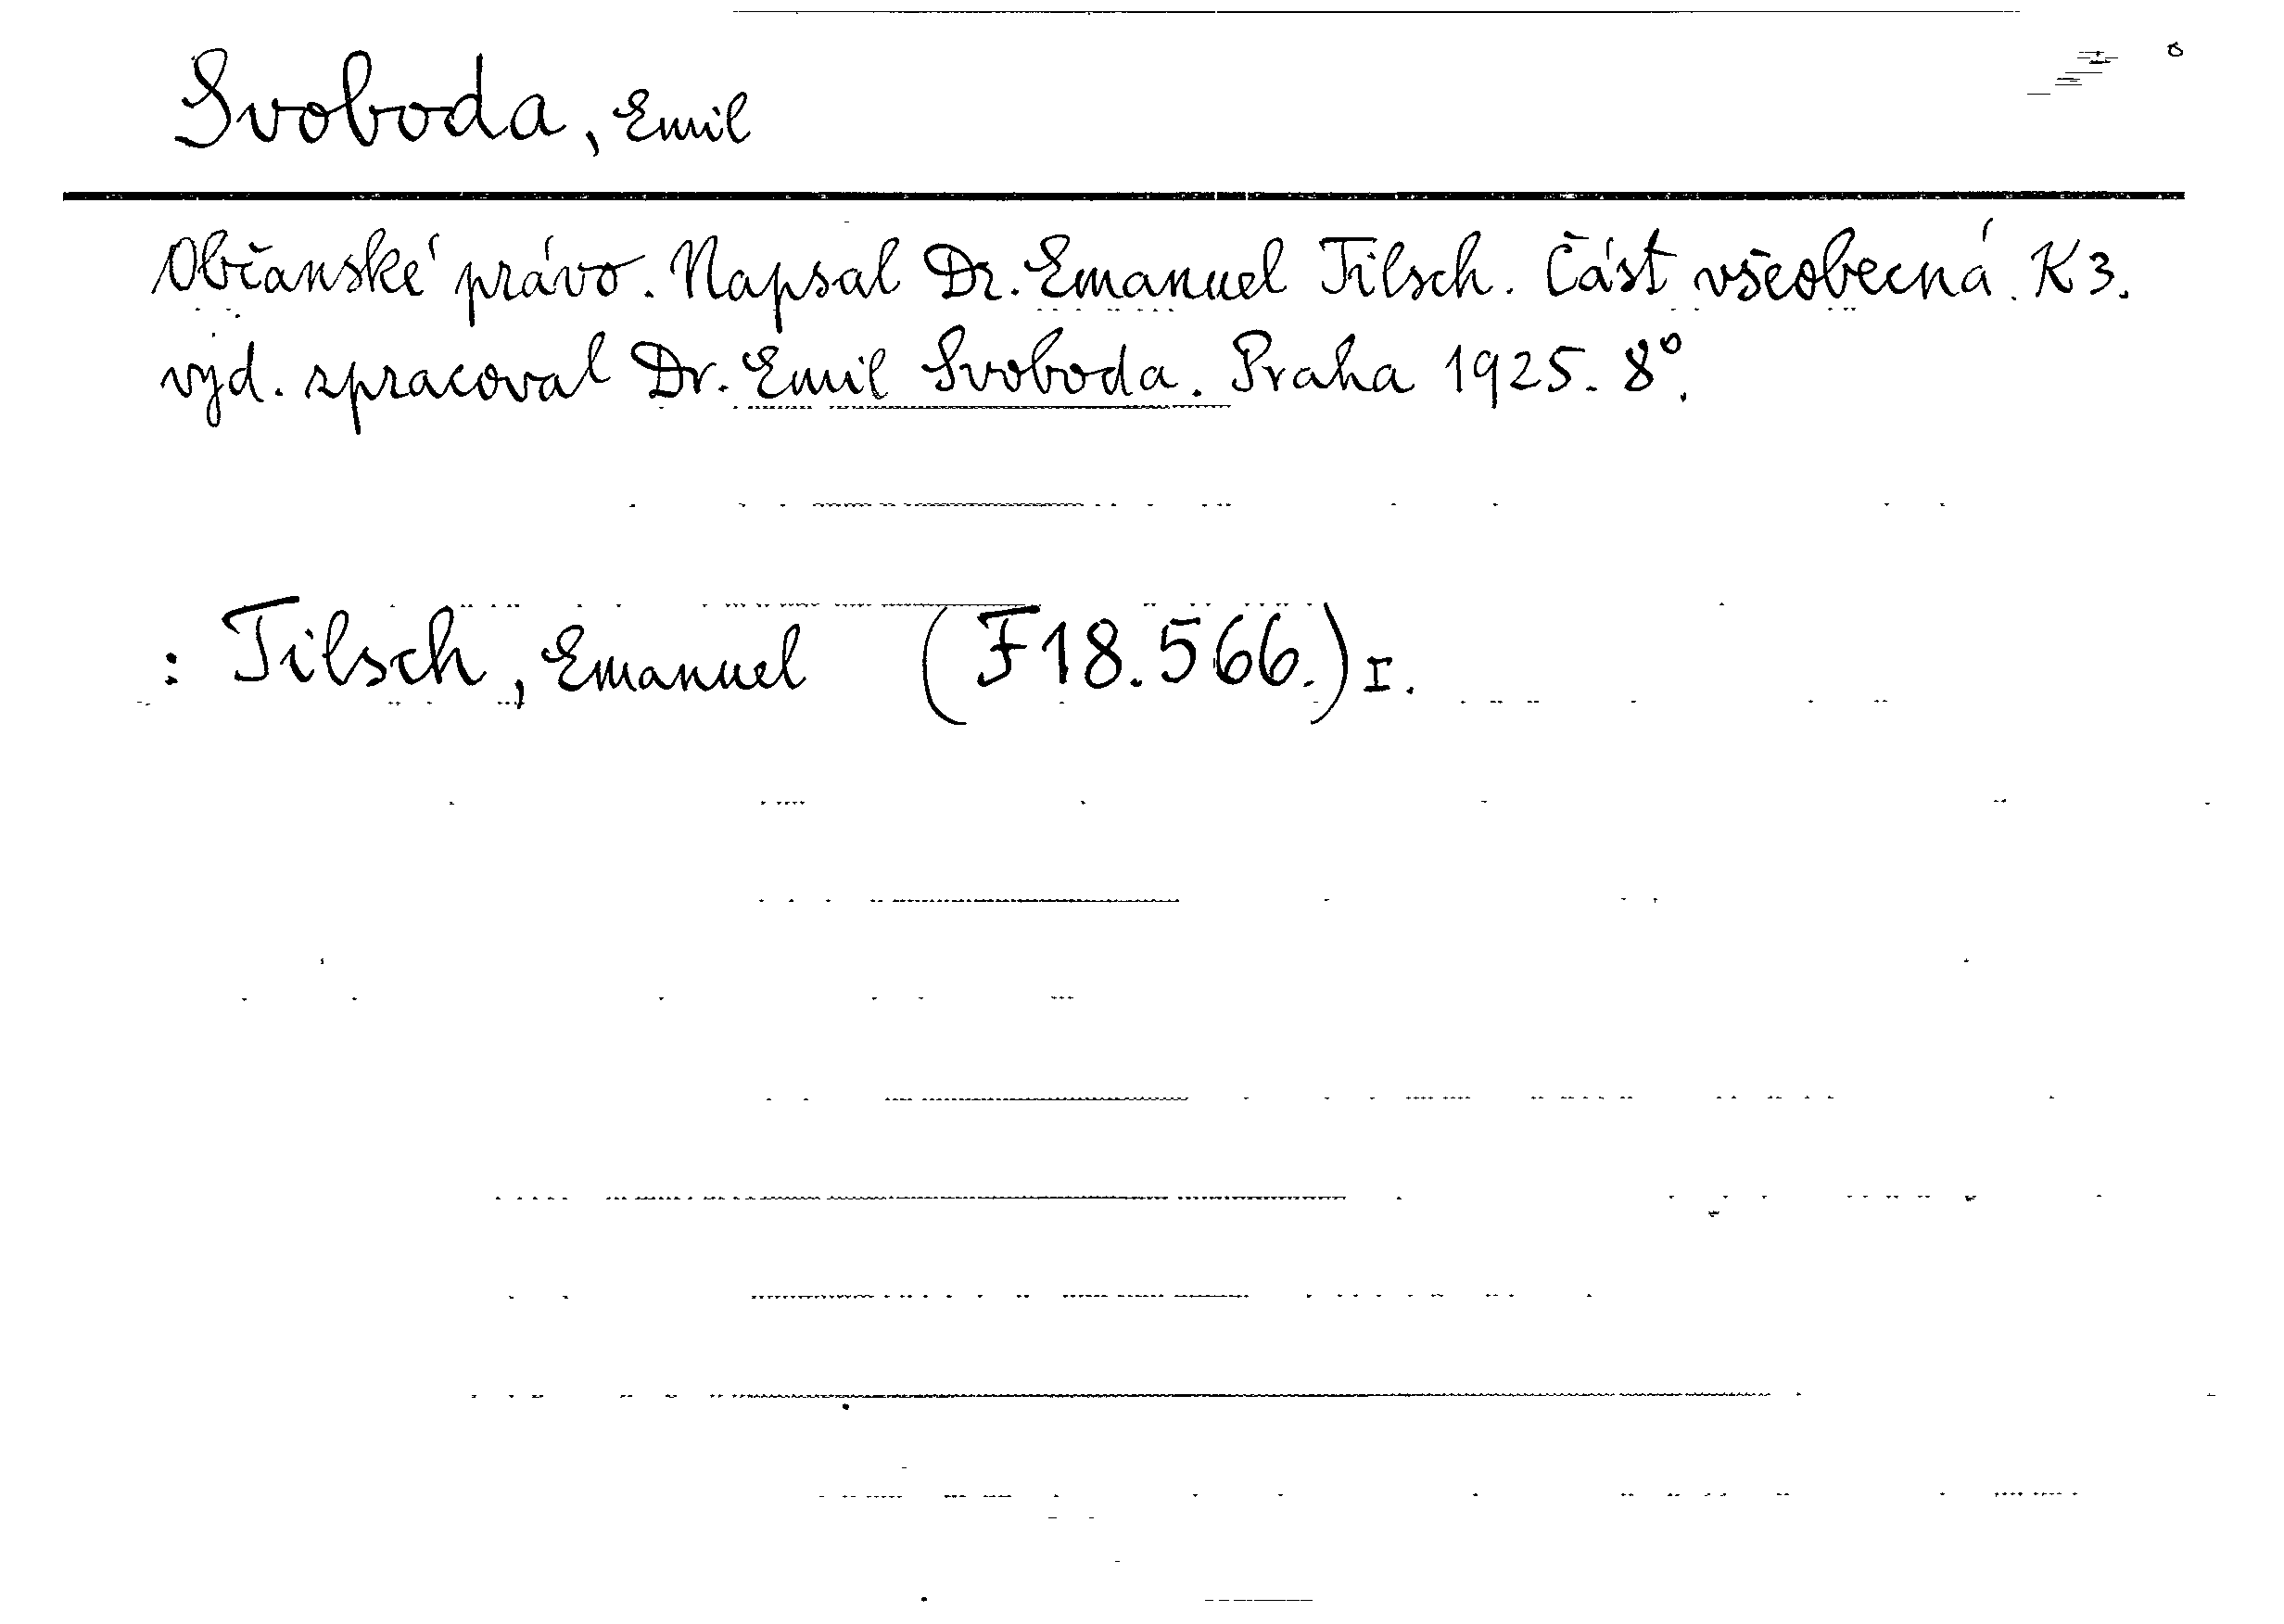 Svoboda, Emil
Občanské právo. Napsal Dr. Emanuel Tilsch. Část všeobecná. K 3.
vyd. zpracoval Dr. Emil Svoboda. Praha 1925. 8°.
: Tilsch, Emanuel (F 18.566.) I.